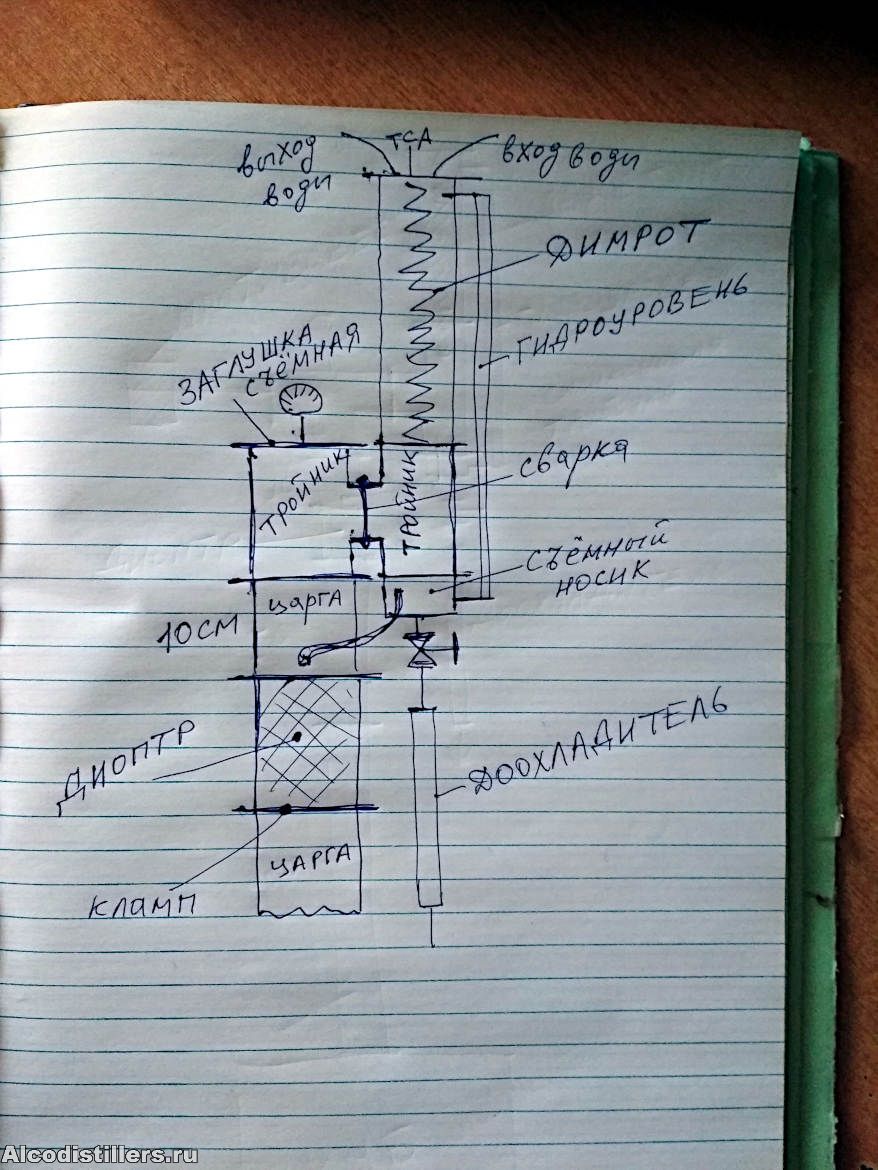 выход
води
ТСА
вход води
ДИМРОТ
ГИДРОУРОВЕНЬ
ЗАГЛУШКА
СЪЁМНАЯ
ТРОЙНИК
ТРОЙНИК
сварка
съёмный
носик
царга
10 СМ
ДИОПТР
ДООХЛАДИТЕЛЬ
ЦАРГА
КЛАМП
Alcodistillers.ru